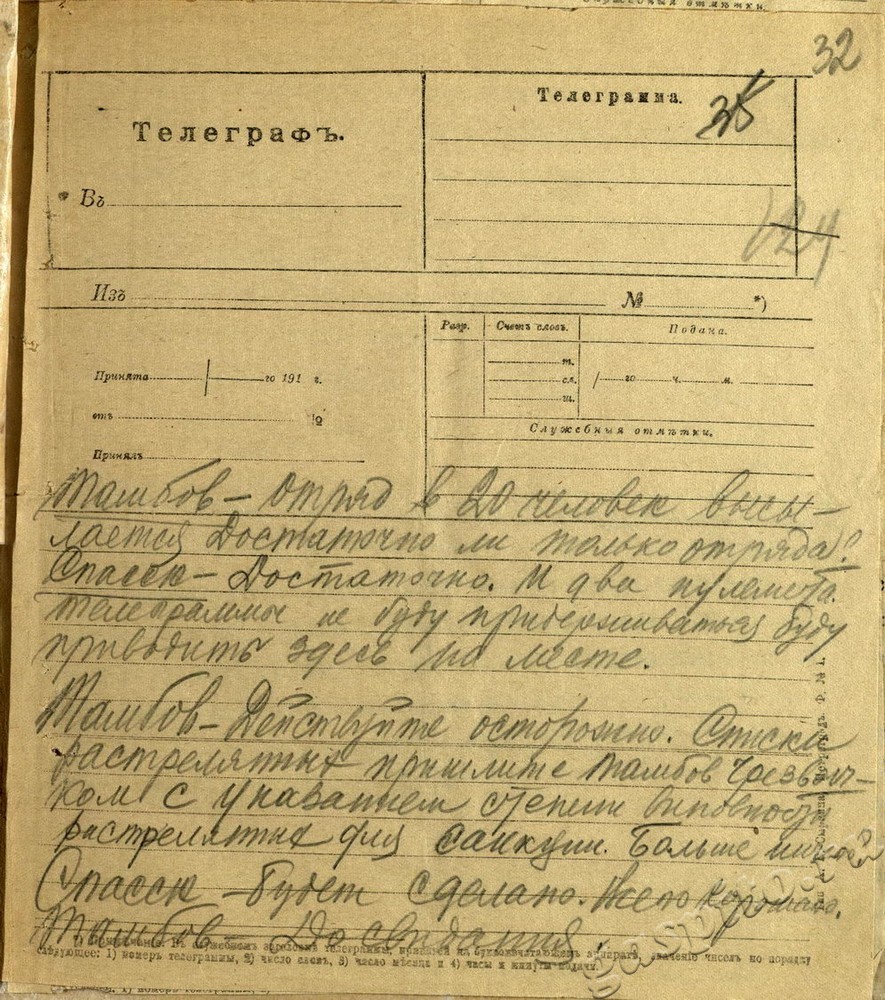 32
Телеграфъ.
Телеграмма.
38
Въ
124
Изъ № *)
Разр. Счетъ словъ. Подана.
Принята го 191 г. т. го ч. м.
сл.
отъ № ш.
Служебныя отмѣтки.
Принялъ
Тамбов – Отряд в 20 человек высы-
лается Достаточно ли только отряда?
Спасск – Достаточно. И два пулемета.
телеграммы не буду придерживаться буду
приводить здесь на месте.
Тамбов – Действуйте осторожно. Списки
растрелятных пришлите тамбов Чрезвыч-
ком с указанием степени виновности
растрелятных для санкции. Больше ничего?
Спасск – Будет сделано. Всего хорошаго.
Тамбов – До свидания.
служебномъ заголовкѣ телеграммы, принятой на буквопечатающемъ аппаратѣ, значеніе чиселъ по порядку
слѣдующее: 1) номеръ телеграммы, 2) число словъ, 3) число мѣсяца и 4) часы и минуты подачи.